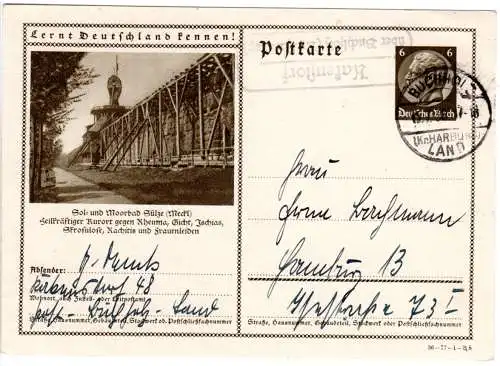 Lernt Deutschland kennen!
Sol- und Moorbad Sülze (Meckl)
Heilkräftiger Kurort gegen Rheuma, Gicht, Ischias,
Skrofulose, Rachitis und Frauenleiden
Absender:
48
Wohnort, auch Zustell- oder Leitpostamt
Post Buchholz-Land
Straße, Hausnummer, Gebäudeteil, Stockwerk od. Postschließfachnummer
Postkarte
(über Buchholz
6 6
Deutsches Reich
BUCHHOLZ
(Kr. HARBURG)
LAND
Frau
Erna Bachmann
Hamburg 13
73 I
Straße, Hausnummer, Gebäudeteil, Stockwerk oder Postschließfachnummer